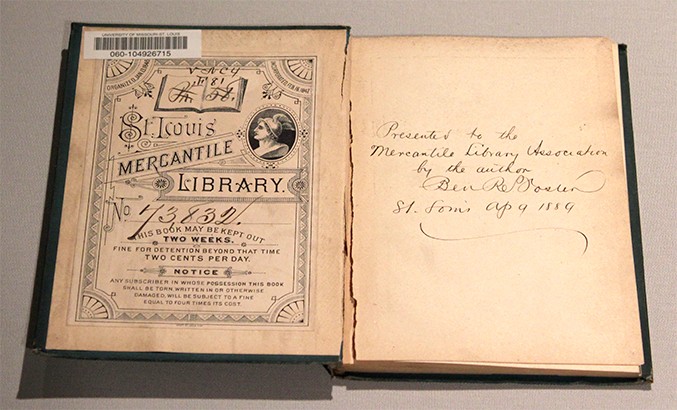 UNIVERSITY OF MISSOURI-ST. LOUIS
060-104926715
ORGANIZED JAN. 13, 1846
INCORPORATED FEB. 18, 1847
VNCY
.F81
St. Louis
MERCANTILE
LIBRARY.
No 43,832.
THIS BOOK MAY BE KEPT OUT
TWO WEEKS.
FINE FOR DETENTION BEYOND THAT TIME
TWO CENTS PER DAY.
NOTICE
ANY SUBSCRIBER IN WHOSE POSSESSION THIS BOOK
SHALL BE TORN, WRITTEN IN OR OTHERWISE
DAMAGED, WILL BE SUBJECT TO A FINE
EQUAL TO FOUR TIMES ITS COST.
Presented to the
Mercantile Library Association
by the author
Ben Foster
St. Louis Ap 9 1889